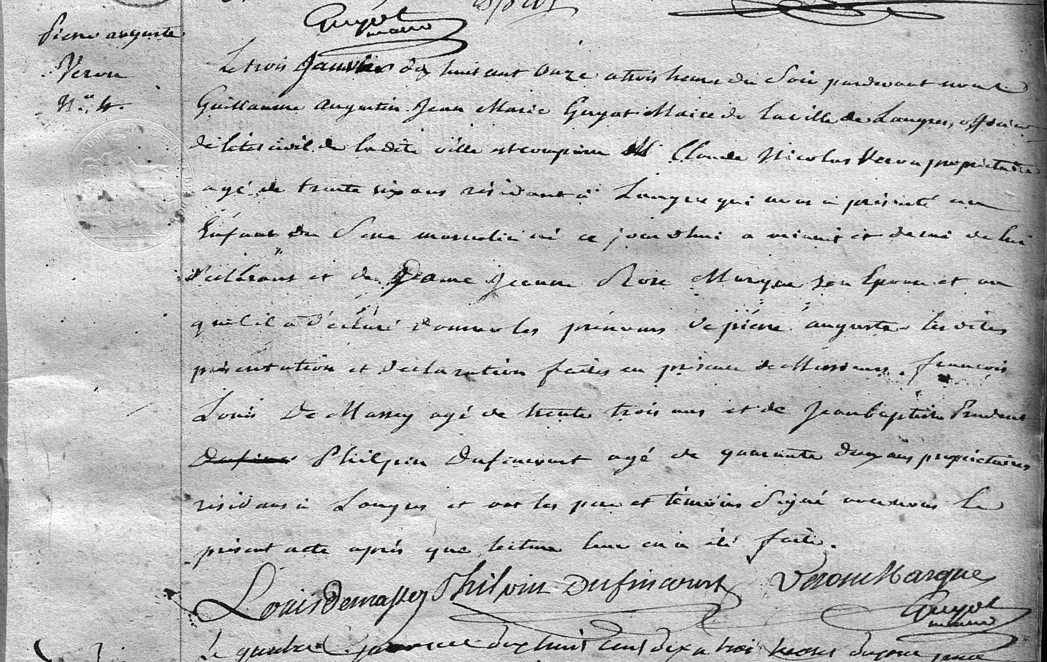 Guyot
maire
Pierre auguste
Veron
N.° 4.
Le trois Janvier dix huit cent onze a trois heures du Soir pardevant nous
Guillaume augustin Jean Marie Guyot Maire de La ville de Langres, officier
de l'état civil de la dite ville est comparu Claude Nicolas Veron propriétaire
agé de trente six ans résidant à Langres qui nous a présenté un
Enfant du Sexe masculin né ce jourdhui a minuit et demi de lui
Déclarant et de Dame Jeanne Rose Marque son Epouse et au
quel il a déclaré donner les prénoms de pierre auguste. les dites
présentation et déclaration faites en présence de Messieurs françois
Louis De Massey agé de trente trois ans et de Jean baptiste Prudent
Philpin Dufincourt agé de quarante deux ans propriétaires
résidans à Langres et ont les pere et témoins Signé avec nous le
présent acte après que lecture leur en a été faite.
Louis Demassey Philpin Dufincourt Veron Marque
Guyot
maire
Le quatre janvier dix huit cent